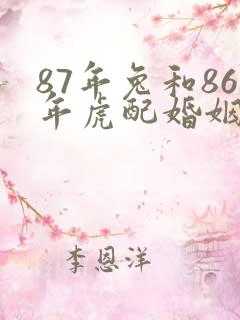 87年兔和86
年虎配婚姻
李恩洋